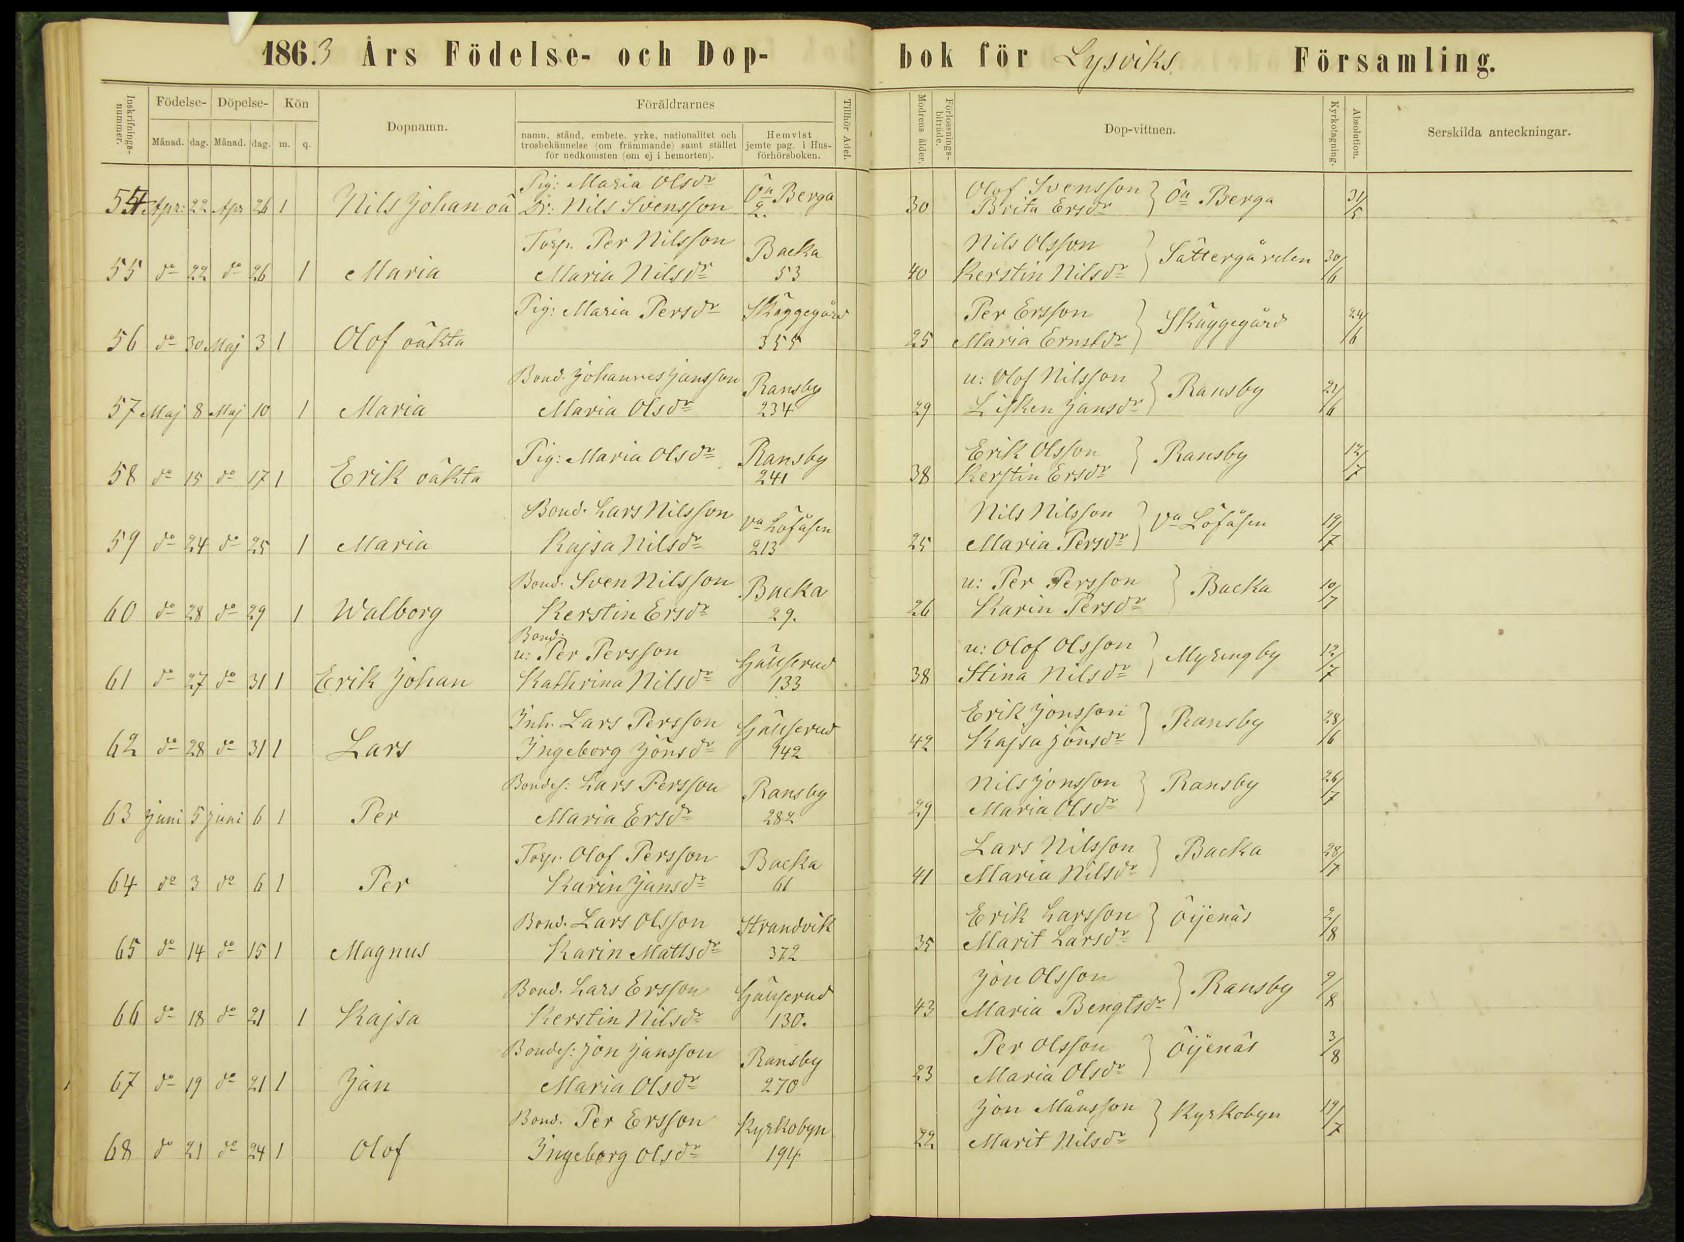 1863 Års Födelse- och Dop- bok för Lysviks Församling.
Inskrifnings-nummer. Födelse- Döpelse- Kön Dopnamn. Föräldrarnes Tillhör Adel. Modrens ålder. Förlossnings-biträde. Dop-vittnen. Kyrkotagning. Absolution. Serskilda anteckningar.
Månad. dag. Månad. dag. m. q.
namn, stånd, embete, yrke, nationalitet och trosbekännelse (om främmande) samt stället för nedkomsten (om ej i hemorten).
Hemvist jemte pag. i Hus-förhörsboken.
Pig: Maria Olsdr Öa Berga Olof Svensson } Öa Berga 31/5
54 Apr: 22 Apr 26 1 Nils Johan oä Dr: Nils Svensson 2. 30 Brita Ersdr
Torp. Per Nilsson Backa Nils Olsson } Sättergården 30/6
55 do 22 do 26 1 Maria Maria Nilsdr 53 40 Kerstin Nilsdr
Pig: Maria Persdr Skäggegård Per Ersson } Skäggegård 24/6
56 do 30 Maj 3 1 Olof oäkta 355 25 Maria Ernstdr
Bond. Johannes Jansson Ransby u: Olof Nilsson } Ransby 21/6
57 Maj 8 Maj 10 1 Maria Maria Olsdr 234 29 Lisken Jansdr
Pig: Maria Olsdr Ransby Erik Olsson } Ransby 12/7
58 do 15 do 17 1 Erik oäkta 241 38 Kerstin Ersdr
Bond. Lars Nilsson Va Löfåsen Nils Nilsson } Va Löfåsen 19/7
59 do 24 do 25 1 Maria Kajsa Nilsdr 213 25 Maria Persdr
Bond. Sven Nilsson Backa u: Per Persson } Backa 10/7
60 do 28 do 29 1 Walborg Kerstin Ersdr 29. 26 Karin Persdr
Bond.
u: Per Persson Gällserud u: Olof Olsson } Myrengby 12/7
61 do 27 do 31 1 Erik Johan Kathrina Nilsdr 133 38 Stina Nilsdr
Inh. Lars Persson Gällserud Erik Jonsson } Ransby 28/6
62 do 28 do 31 1 Lars Ingeborg Jönsdr 142 42 Kajsa Jönsdr
Bondes: Lars Persson Ransby Nils Jonsson } Ransby 26/7
63 Juni 5 Juni 6 1 Per Maria Ersdr 282 29 Maria Olsdr
Torp. Olof Persson Backa Lars Nilsson } Backa 28/7
64 do 3 do 6 1 Per Karin Jansdr 61 41 Maria Nilsdr
Bond. Lars Olsson Strandvik Erik Larsson } Öijenäs 2/8
65 do 14 do 15 1 Magnus Karin Mattsdr 372 35 Marit Larsdr
Bond. Lars Ersson Gällserud Jon Olsson } Ransby 9/8
66 do 18 do 21 1 Kajsa Kerstin Nilsdr 130. 43 Maria Bengtsdr
Bondes: Jon Jansson Ransby Per Olsson } Öijenäs 3/8
67 do 19 do 21 1 Jan Maria Olsdr 270 23 Maria Olsdr
Bond. Per Ersson Kyrkobyn Jon Månsson } Kyrkobyn 19/7
68 do 21 do 24 1 Olof Ingeborg Olsdr 194 22 Marit Nilsdr